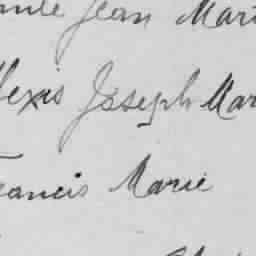 Jean Mar
lexis Joseph Mar
rancis Marie